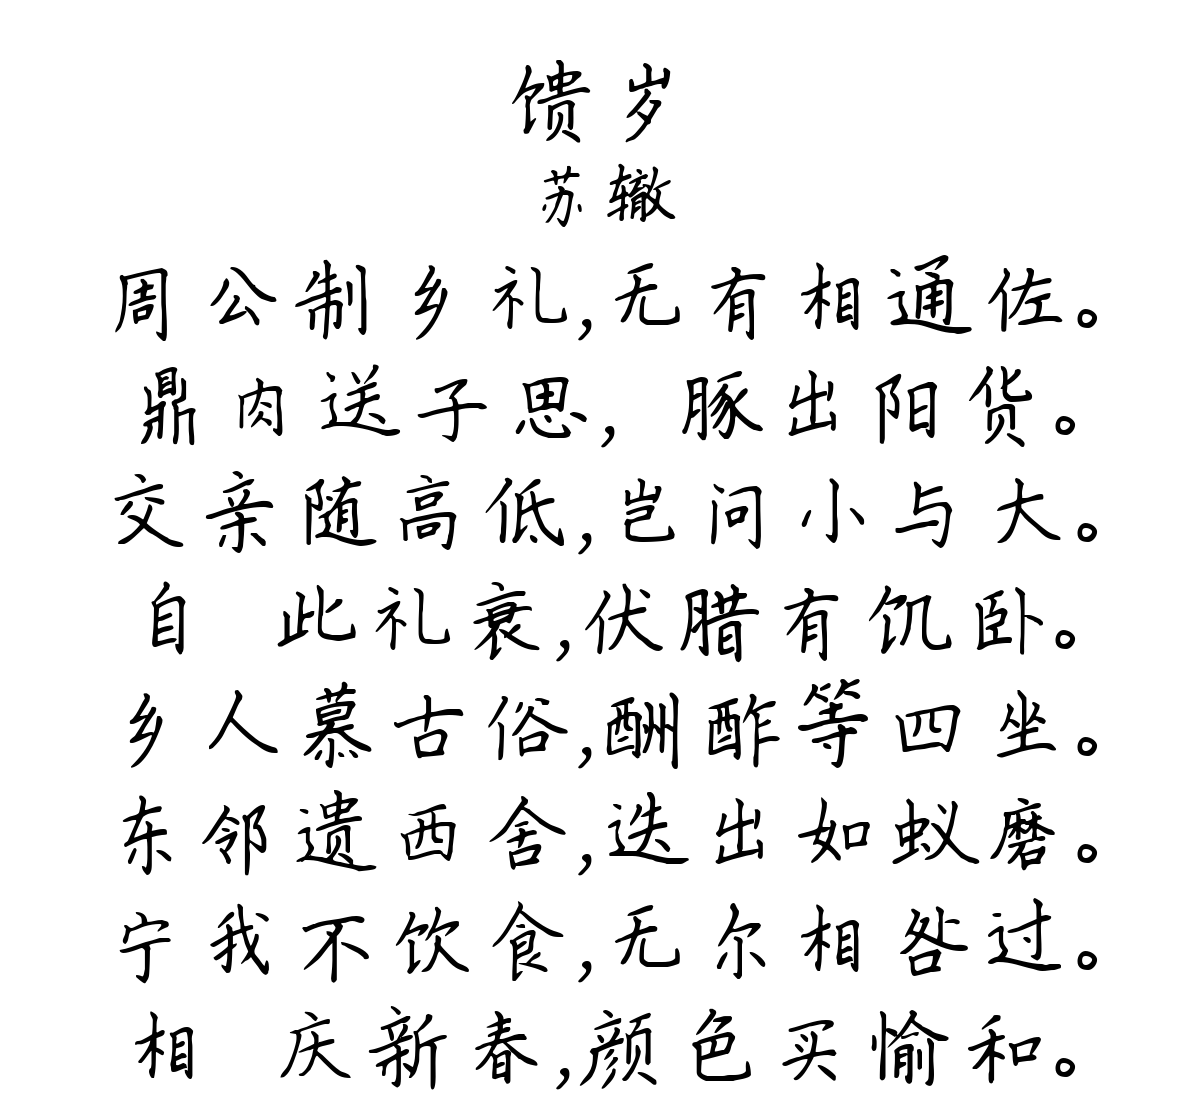 馈岁
苏辙
周公制乡礼,无有相通佐。
鼎肉送子思,豚出阳货。
交亲随高低,岂问小与大。
自 此礼衰,伏腊有饥卧。
乡人慕古俗,酬酢等四坐。
东邻遗西舍,迭出如蚁磨。
宁我不饮食,无尔相咎过。
相 庆新春,颜色买愉和。